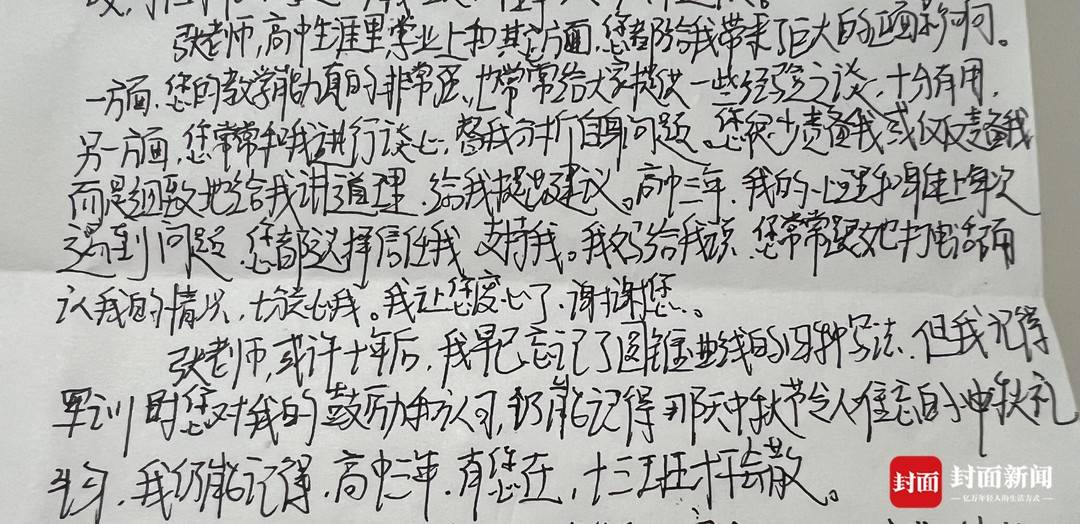 张老师,高中生涯里学业上和其它方面,您都给我带来了巨大的正面影响。
一方面,您的教学能力真的非常强,也常常给大家提供一些经验之谈,十分有用,
另一方面,您常常和我进行谈心,帮我分析自身问题。您很少责备我或仅仅责备我
而是细致地给我讲道理,给我提出建议。高中三年,我的心理和身体上每次
遇到问题,您都选择信任我,支持我。我妈给我说,您常常跟她打电话确
认我的情况,十分关心我。我让您废心了,谢谢您。
张老师,或许十年后,我早已忘记了圆锥曲线的四种写法,但我记得
军训时您对我的鼓励和认可,我仍能记得那天中秋节令人难忘的小中秋礼
,我仍能记得,高中三年,有您在,十三班才不会散。
封面 封面新闻
亿万年轻人的生活方式